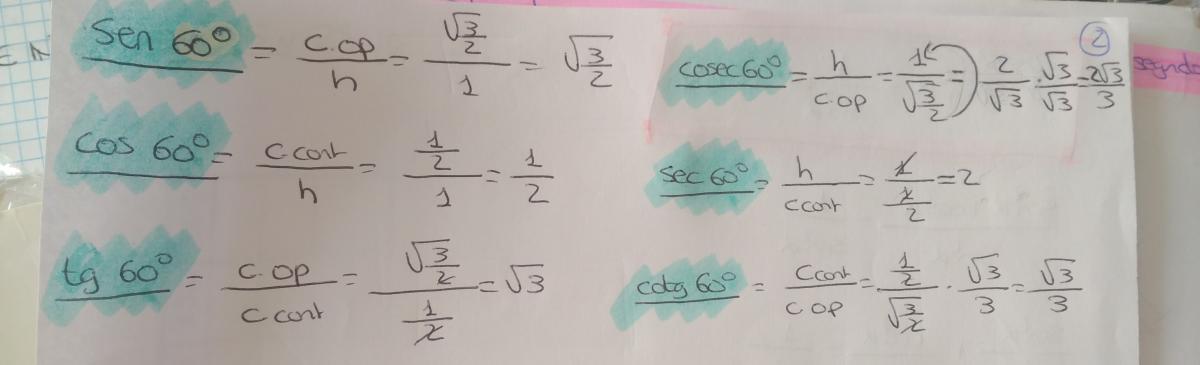 Sen 60° = c.op/h = (√3/2)/1 = √3/2
cos 60° = c cont/h = (1/2)/1 = 1/2
tg 60° = c.op/c cont = (√3/2)/(1/2) = √3
②
cosec 60° = h/c op = 1/(√3/2) = 2/√3 · √3/√3 = 2√3/3
sec 60° = h/c cont = 1/(1/2) = 2
cotg 60° = c cont/c op = (1/2)/(√3/2) · √3/3 = √3/3
segndo